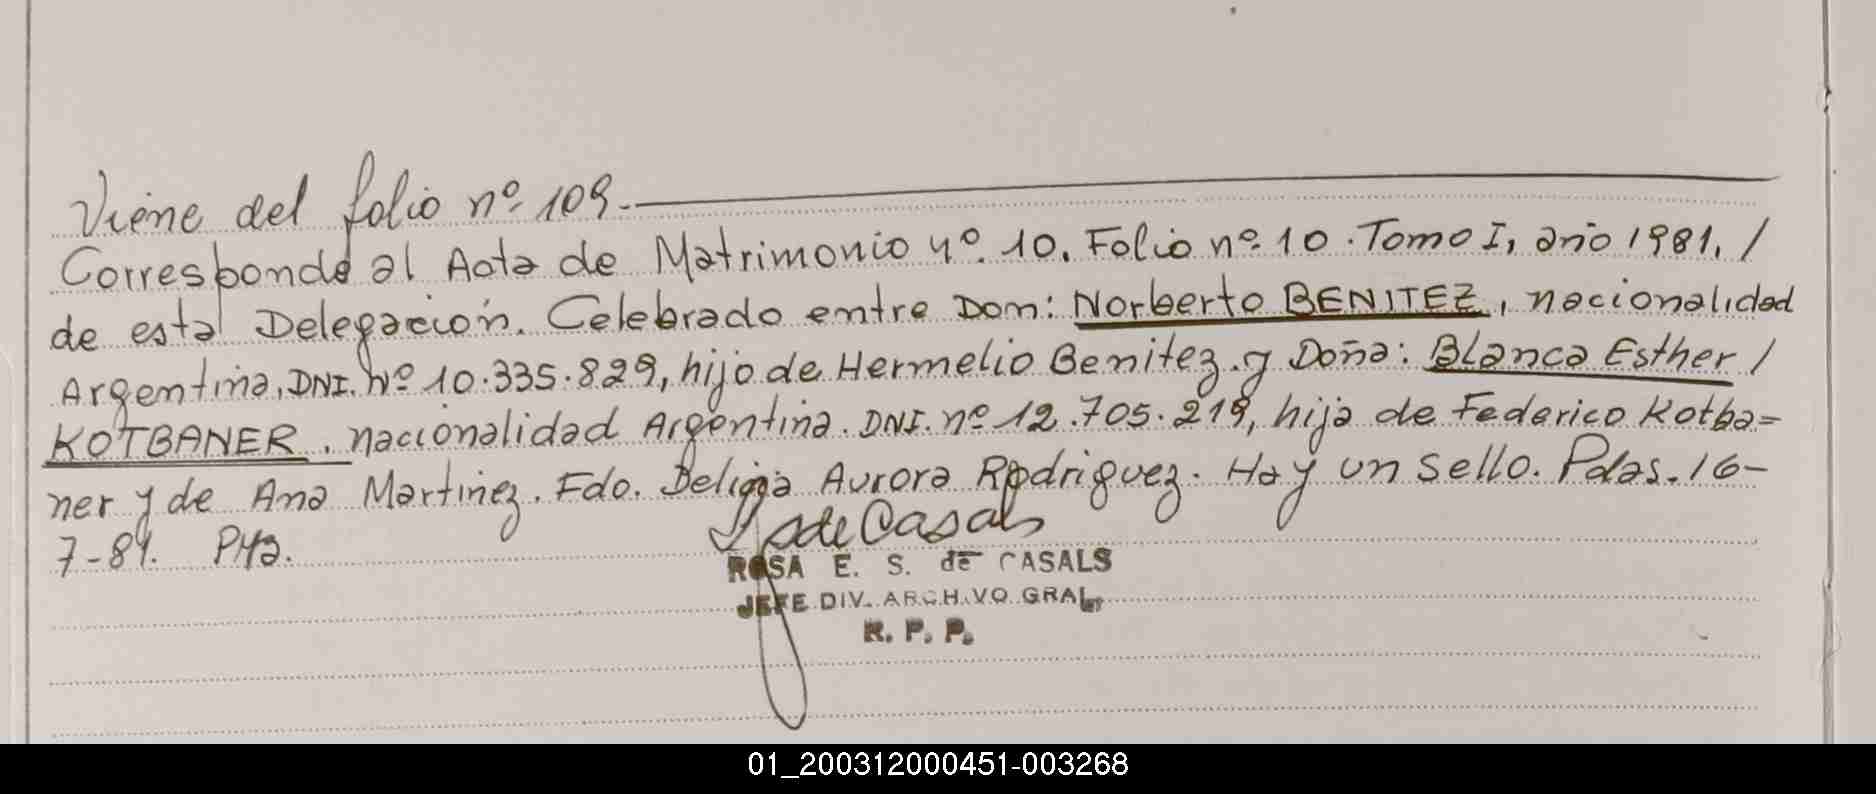 Viene del folio nº 109.
Corresponde al Acta de Matrimonio nº. 10. Folio nº 10. Tomo I, año 1981. /
de esta Delegación. Celebrado entre Dom: Norberto BENITEZ, nacionalidad
Argentina, DNI. Nº 10.335.829, hijo de Hermelio Benitez. y Doña: Blanca Esther /
KOTBANER. nacionalidad Argentina. DNI. nº 12.705.219, hija de Federico Kotba=
ner y de Ana Martinez. Fdo. Aurora Rodriguez. Hay un sello. Pdas. 16-
7-81.
de Casals
ROSA E. S. de CASALS
JEFE DIV. ARCHIVO GRAL.
R. P. P.
01_200312000451-003268